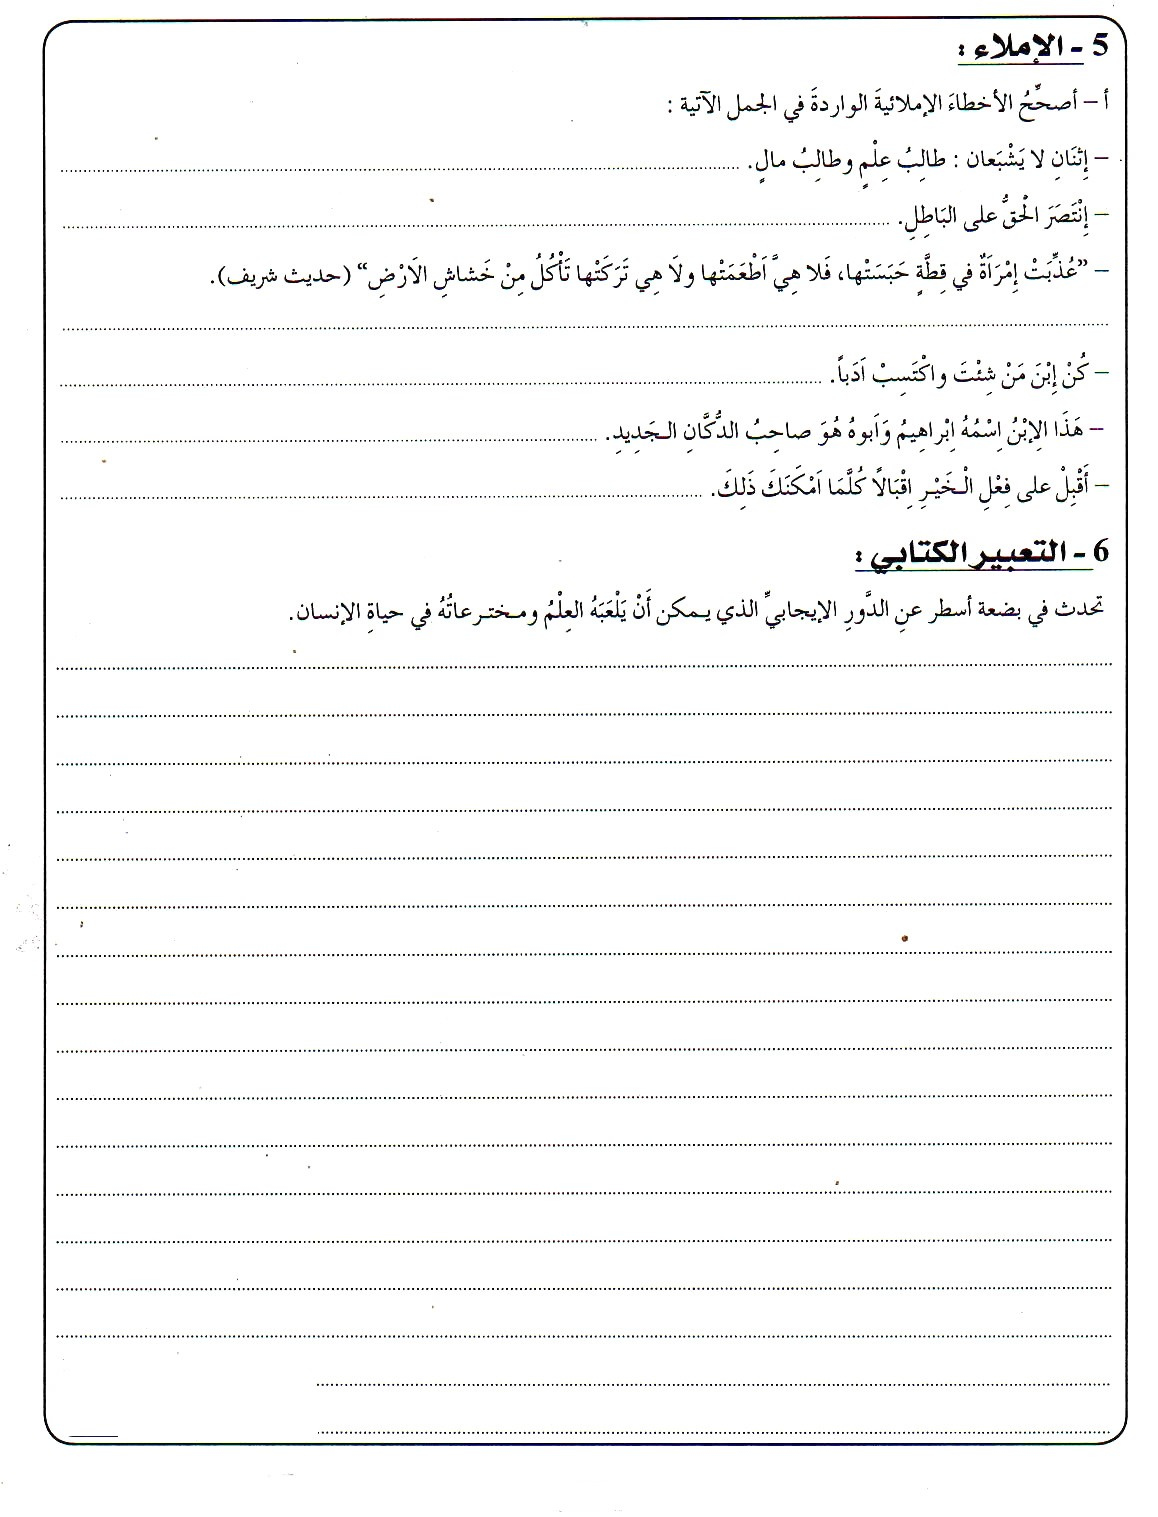 5 - الإملاء :
أ – أصحِّحُ الأخطاءَ الإملائيةَ الواردةَ في الجمل الآتية :
– إِثنَانِ لا يَشْبَعان : طالِبُ عِلْمٍ وطالِبُ مالٍ.
– إِنْتَصَرَ الْحقُّ على البَاطِلِ.
– ”عُذِّبَتْ إِمْرَأَةٌ في قِطَّةٍ حَبَسَتْها، فَلا هِيَّ اَطْعَمَتْها ولاَ هِي تَرَكَتْها تَأْكُلُ مِنْ خَشاشِ الاَرْضِ“ (حديث شريف).
– كُنْ إِبْنَ مَنْ شِئْتَ واكْتَسِبْ اَدَباً.
– هَذَا الإِبْنُ اِسْمُهُ اِبْراهِيمُ وَاَبوهُ هُوَ صاحِبُ الدُّكَّانِ الـجَدِيدِ.
– أَقْبِلْ على فِعْلِ الْـخَيْـرِ اِقْبَالاً كُلَّمَا اَمْكَنَكَ ذَلِكَ.
6 - التعبير الكتابي :
تحدث في بضعة أسطر عنِ الدَّورِ الإيجابيِّ الذي يـمكن أَنْ يَلْعَبَهُ العِلْمُ ومـختـرعاتُهُ في حياةِ الإنسان.